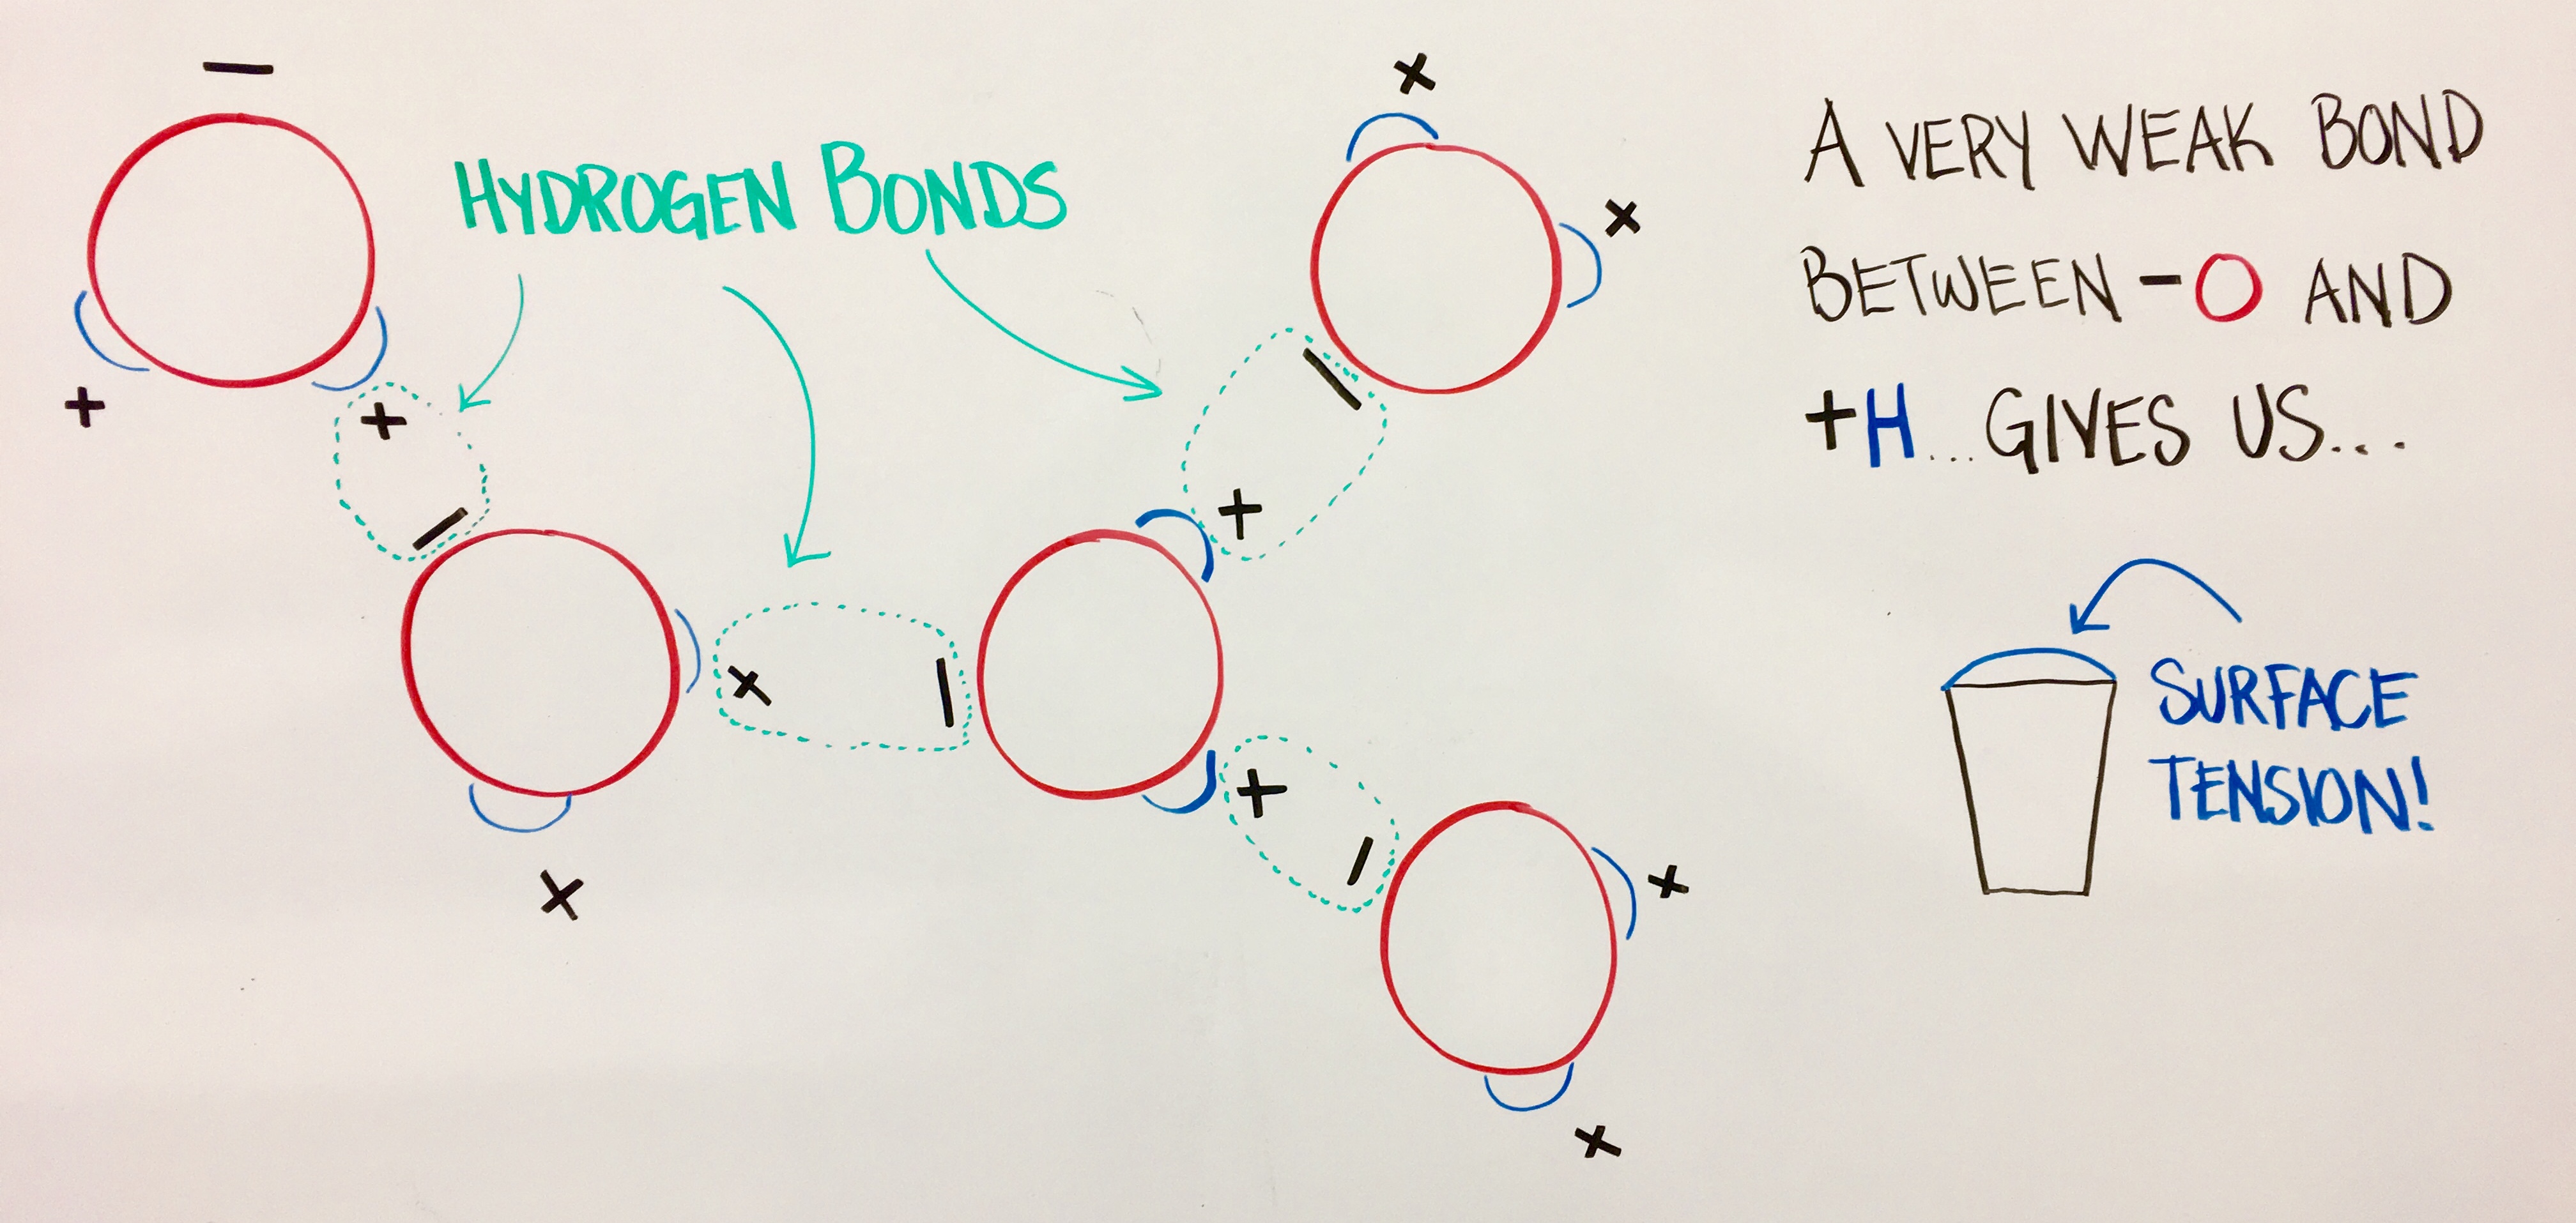 HYDROGEN BONDS
A VERY WEAK BOND
BETWEEN -O AND
+H... GIVES US...
SURFACE
TENSION!